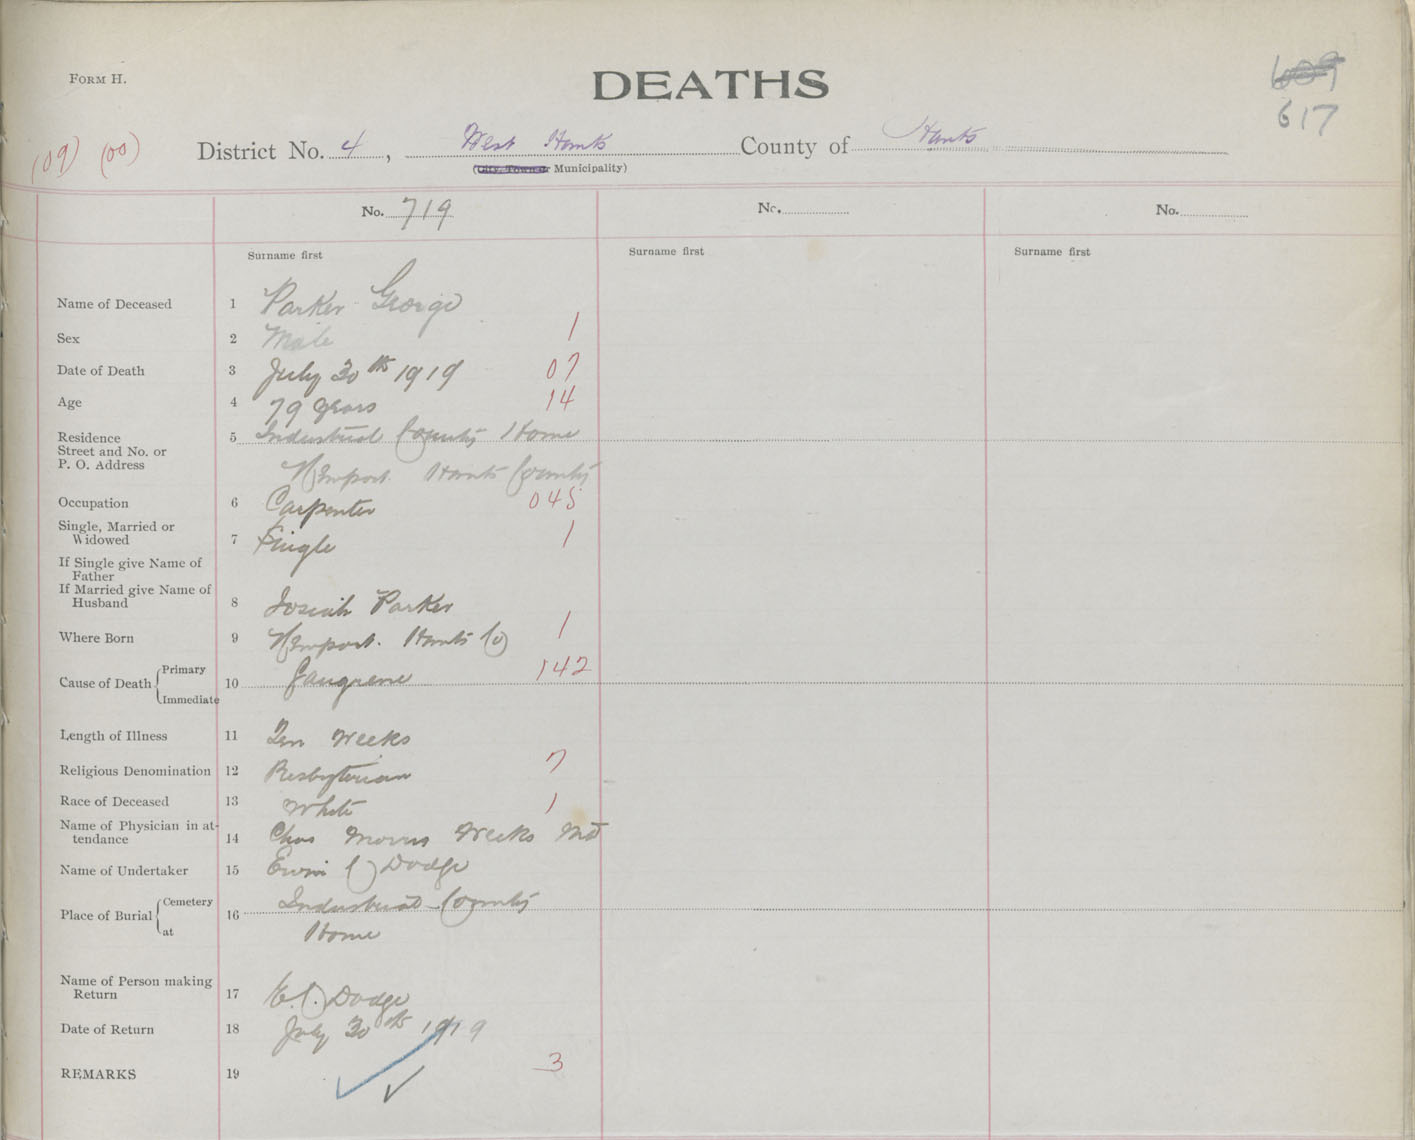 FORM H.
DEATHS
609
617
(09) (00)
District No. 4, West Hants County of Hants
(City, Town or Municipality)
No. 719
No.
No.
Surname first
Surname first
Surname first
Name of Deceased 1 Parker George
Sex 2 Male 1
Date of Death 3 July 30th 1919 07
Age 4 79 years 14
Residence 5 Industrial County Home
Street and No. or
P. O. Address Newport. Hants County
Occupation 6 Carpenter 045
Single, Married or
Widowed 7 Single 1
If Single give Name of
Father
If Married give Name of
Husband 8 Josiah Parker
Where Born 9 Newport. Hants Co 1
Cause of Death Primary 10 Gangrene 142
Immediate
Length of Illness 11 Ten Weeks
Religious Denomination 12 Presbyterian 7
Race of Deceased 13 White 1
Name of Physician in at-
tendance 14 Chas Morris Weeks MD
Name of Undertaker 15 Erwin C Dodge
Place of Burial Cemetery 16 Industrial County
at Home
Name of Person making
Return 17 E.C. Dodge
Date of Return 18 July 30th 1919
REMARKS 19 3